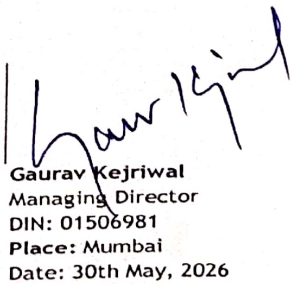 Gaurav Kejriwal
Managing Director
DIN: 01506981
Place: Mumbai
Date: 30th May, 2026